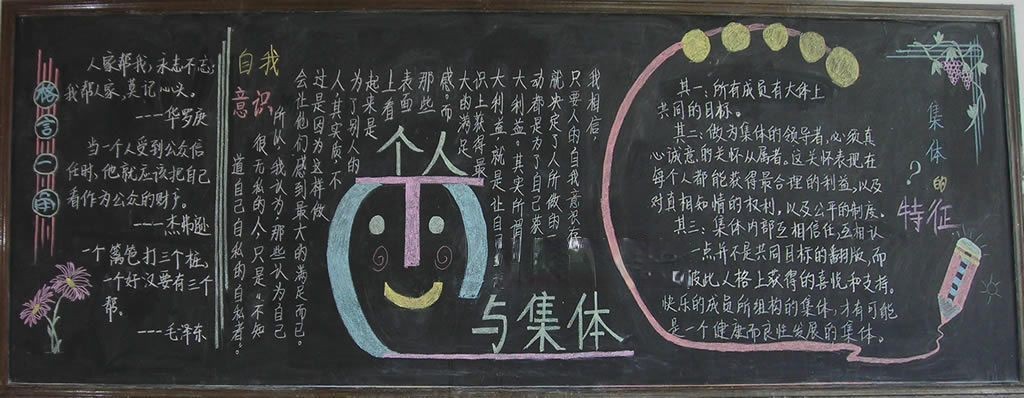 格言一角
人家帮我,永志不忘;
我帮人家,莫记心头。
---华罗庚
当一个人受到公众信
任时,他就应该把自己
看作为公众的财产。
---杰弗逊
一个篱笆打三个桩,
一个好汉要有三个
帮。
---毛泽东
自我
意识
我相信,
只要人的自我意识存
就决定了人所做的一
动都是为了自己获
大利益。其实所谓
大利益。就是让自
识上获得最
大的满足
感。而
那些
表面
上看
起来是
为了别人的
人,其实质不
过是因为这样做
会让他们感到最大的满足而已。
所以,我认为那些认为自己
很无私的人只是“不知
道自己自私的自私者”。
个人
与集体
集体的
?
特征
其一:所有成员有大体上
共同的目标。
其二:做为集体的领导者,必须真
心诚意的关怀从属者。这关怀表现在
每个人都能获得最合理的利益,以及
对真相知情的权利,以及公平的制度。
其三:集体内部互相信任,互相认
一点并不是共同目标的翻版,而
彼此人格上获得的喜悦和支持。
快乐的成员所组构的集体,才有可能
是一个健康而良性发展的集体。